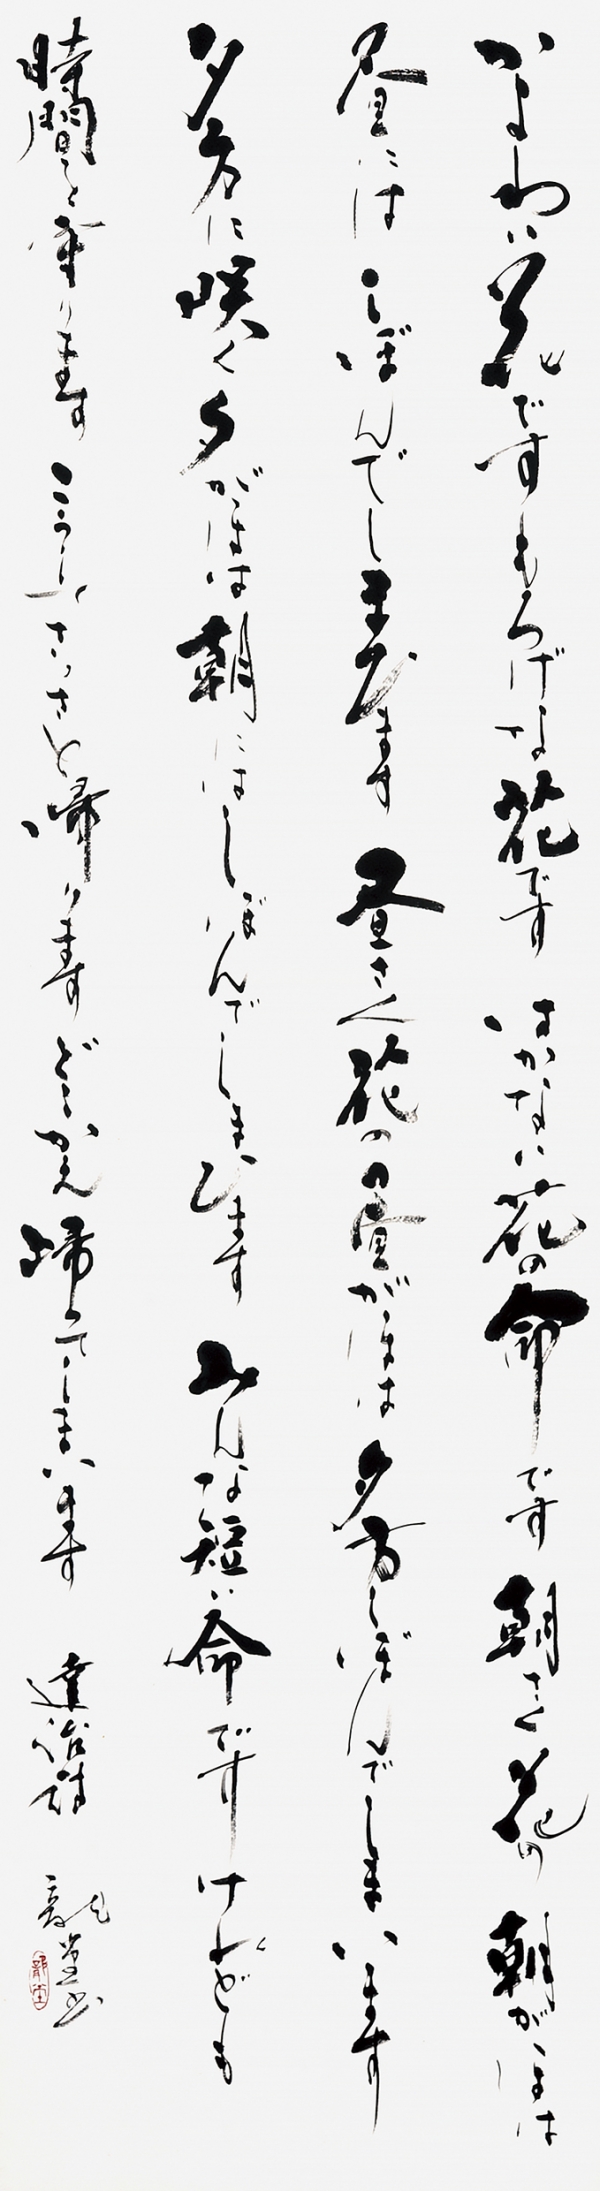 かよわい花です もろげな花です はかない花の命です 朝さく花の朝がほは
昼にはしぼんでしまひます 昼さく花の昼がほは 夕方しぼんでしまいます
夕方に咲く夕がほは 朝にはしぼんでしまひます みんな短い命です けれども
時間を守ります さうしてさつさと帰ります どこかへ帰つてしまいます 達治詩 龍堂書